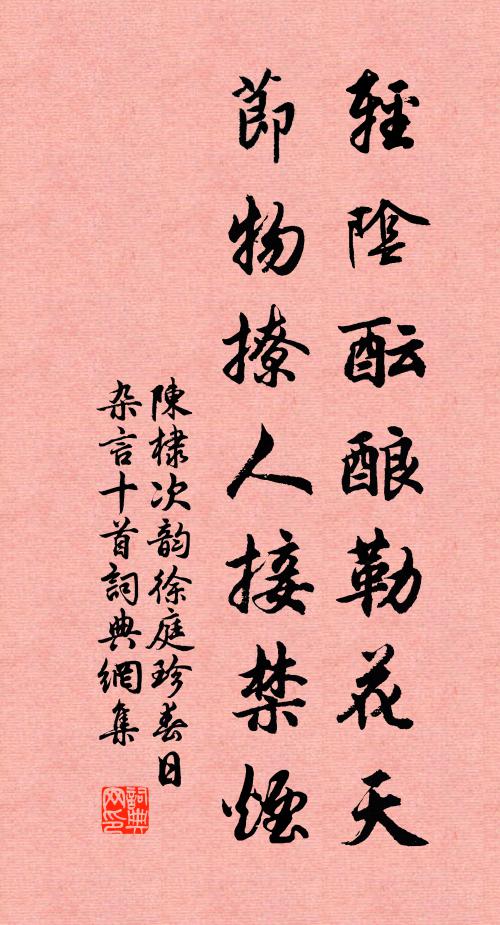 輕陰酝酿勒花天
節物撩人接禁煙
陳棣次韵徐庭珍春日
杂言十首詞典網集
詞典网印